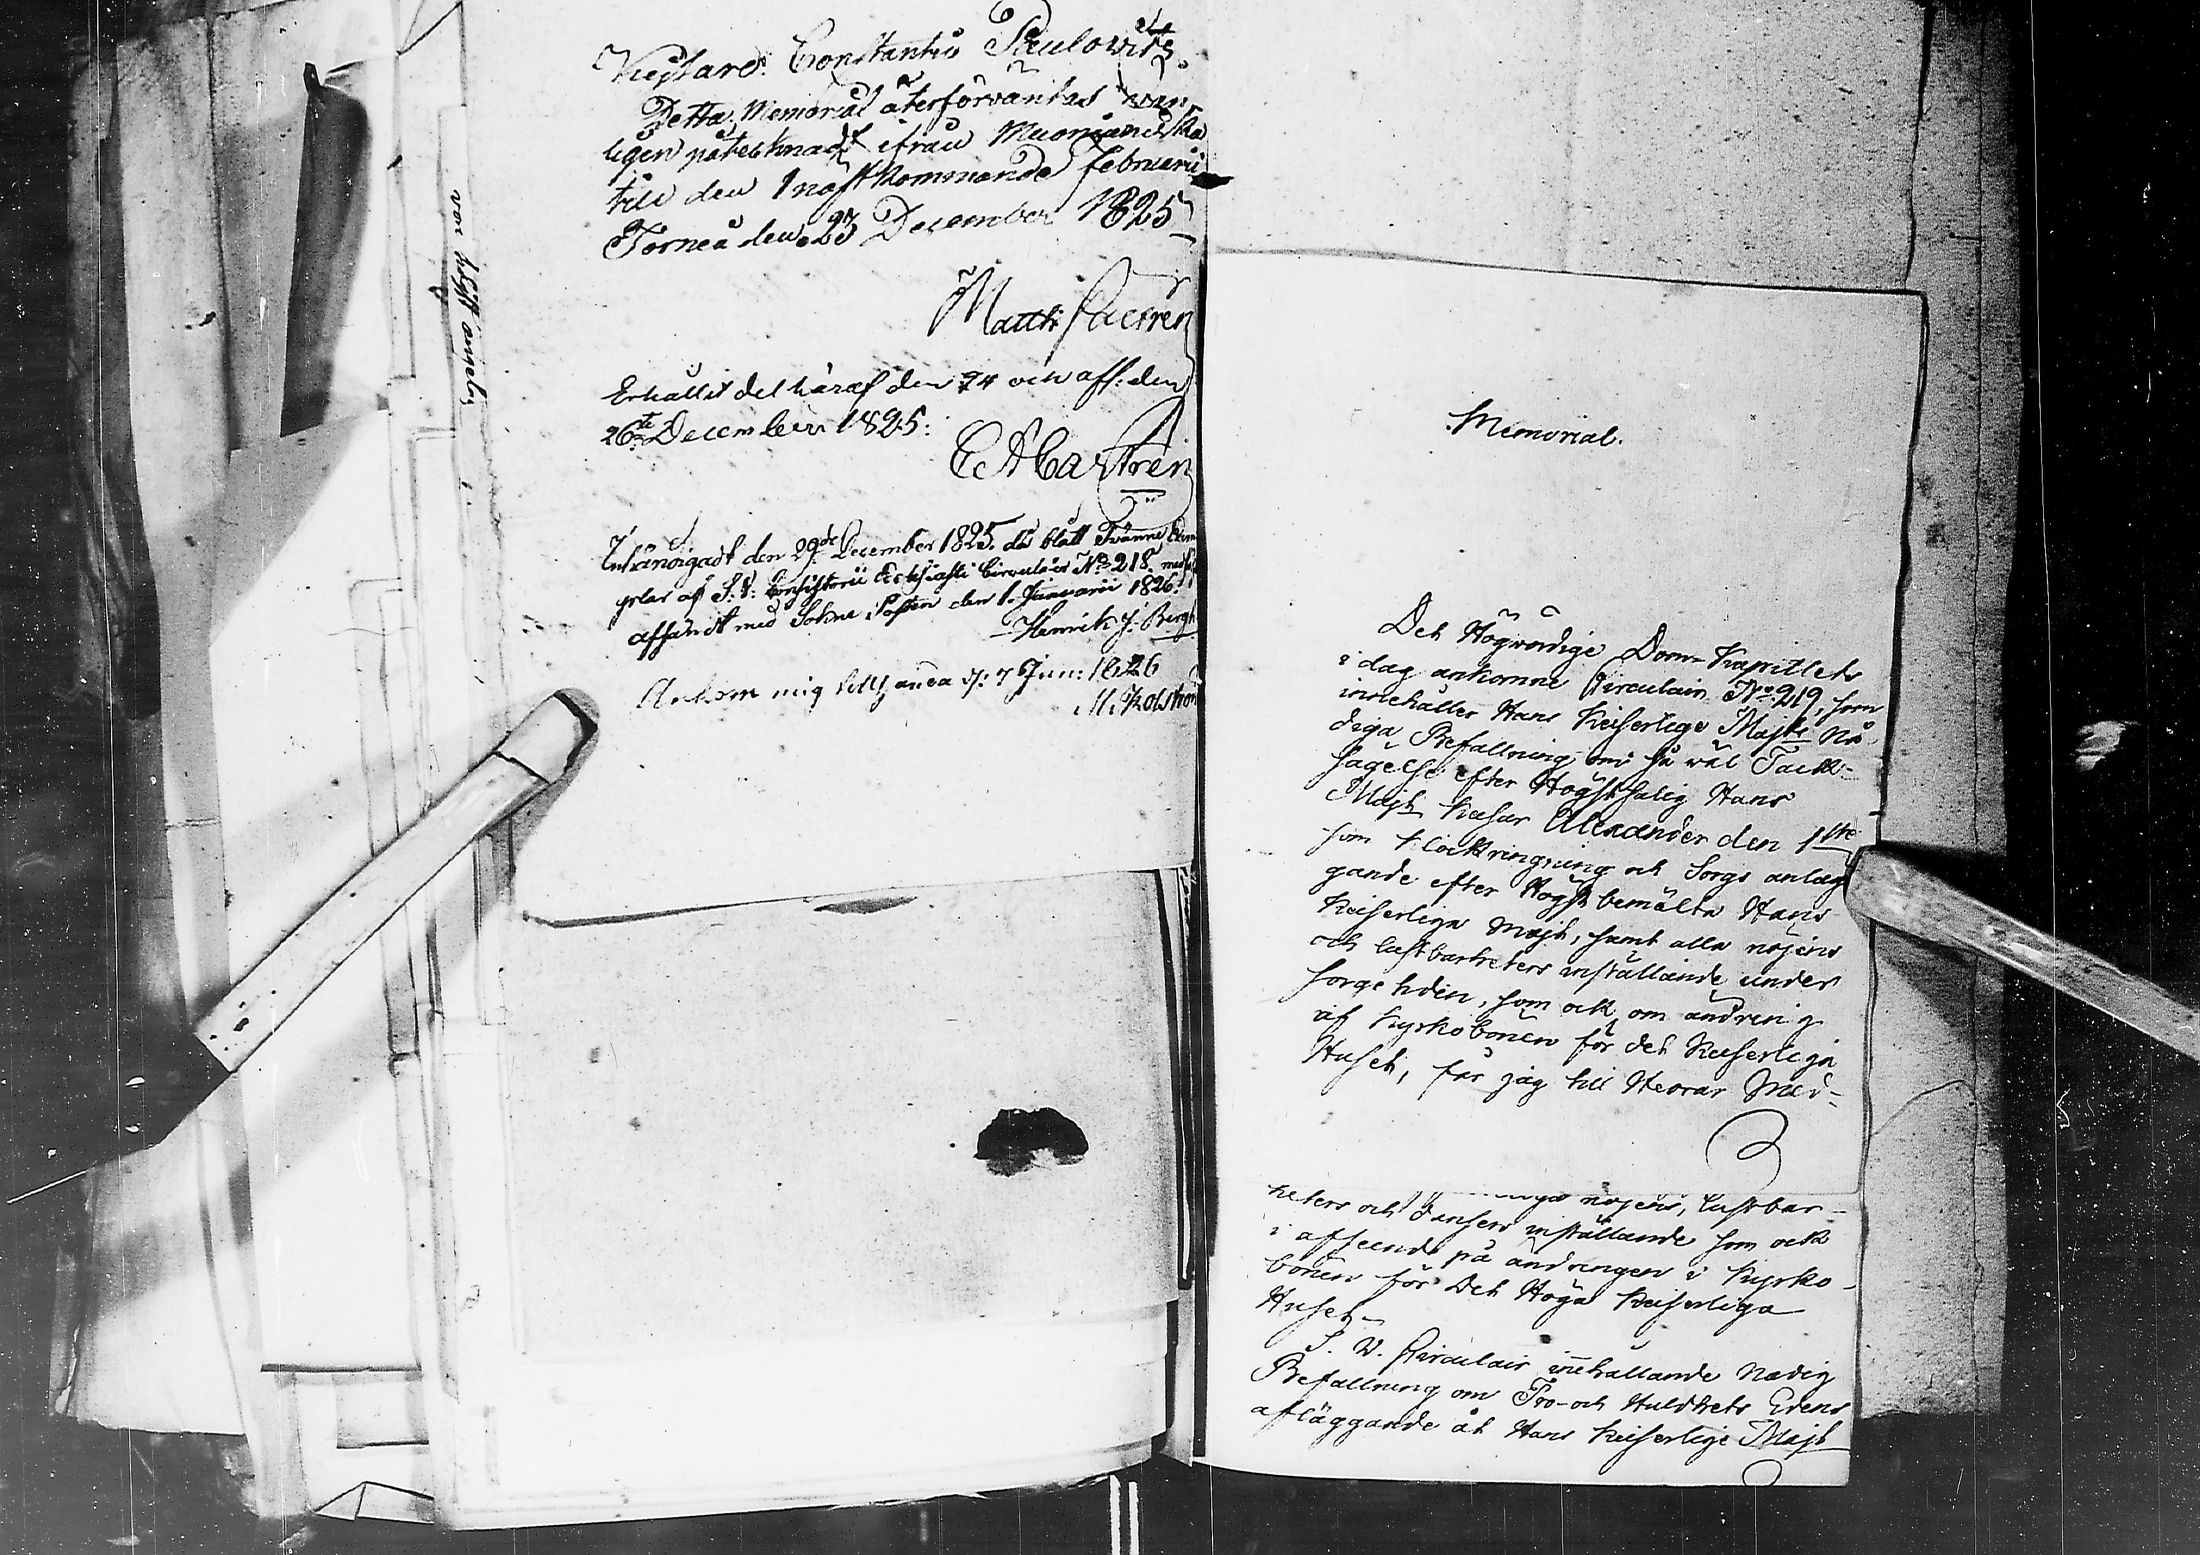 Kejsare Constantin Paulowits.
Detta Memorial återförväntas van
ligen påtecknadt ifrån Muonioniska
till den 1 nästkommande Februarii
Torneå den 23 December 1825
Matth Castrén
Erhållit del häraf den 24 och aff: den
26te December 1825:
C A Castrén
Inhändigadt den 29de December 1825. då blått Tvänne Exem
plar af S. V: Consistorii Ecclesiasti Circulair No 218. med
affändt med Sokne Posten den 1. Januarii 1826.
Henrik J. Bergh
Ankom mig tillhanda d: 7 Jan: 1826
M. Kolström
Memorial.
Det Högwördige Dom-Kapitlets
i dag ankomne Circulair No 219, som
innehåller Hans Keiserlige Majts Nå-
diga Befallning om så väl Tack-
sägelse efter Högstsalig Hans
Majt Keisar Alexander den 1ste
som Klockringning och Sorgs anläg
gande efter Högstbemälta Hans
Keiserliga Majt, samt alla nöjens
och lustbarheters inställande under
sorgetiden, som ock om ändring
af Kyrkobönen för det Keiserliga
Huset, får jag till Herrar Med-
heters och dansers inställande som ock
i afseende på ändringen i Kyrko-
bönen för Det Höga Keiserliga
Huset
S. V. Circulair innehållande Nådig
Befallning om Tro- och Huldhets Edens
afläggande åt Hans Keiserlige Majt